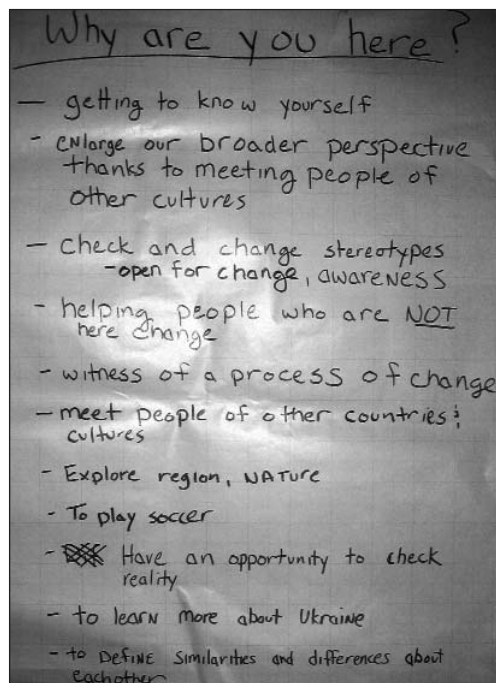 Why are you here?
— getting to know yourself
- enlarge our broader perspective
thanks to meeting people of
other cultures
— check and change stereotypes
-open for change, awareness
- helping people who are NOT
here change
- witness of a process of change
— meet people of other countries &
cultures
- Explore region, NATURE
- To play soccer
- Have an opportunity to check
reality
- to learn more about Ukraine
- to DEFINE Similarities and differences about
each other